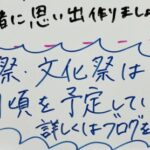 緒に思い出作りましょ
祭・文化祭は
頃を予定してい
詳しくはブログを